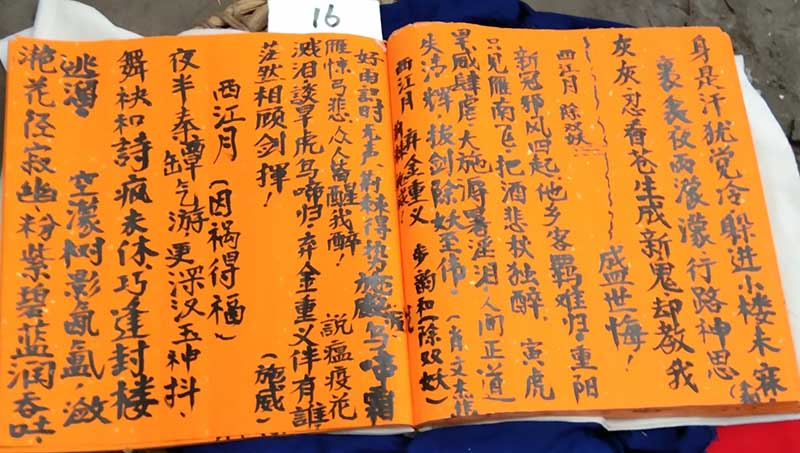 16
身是汗犹觉冷躲进小楼未寐
裹衾夜雨濛濛行路神思
灰灰忍看苍生成新鬼却教我
盛世悔！
西江月 除双妖
新冠邪风四起他乡客羁难归重阳
只见雁南飞把酒悲秋独醉 寅虎
早威肆虐大施溽暑淫泪人间正道
失清辉拔剑除妖至伟 (肖文杰
西江月 弃金重义 步韵和(除双妖)
好雨訂时无声 得势施 霜
雁惊鸟悲众人皆醒我醉！ 説瘟疫花
溅泪談旱虎鸟啼归弃金重义伴有誰
茫然相顾剑揮！ (施威)
西江月 (因祸得福)
夜半奉罈乞游更深汉玉神抖
舞袂和詩疯未休巧逢封楼
逃溜 空濛树影氤氲潋
滟花径寂幽粉紫碧蓝润吞吐